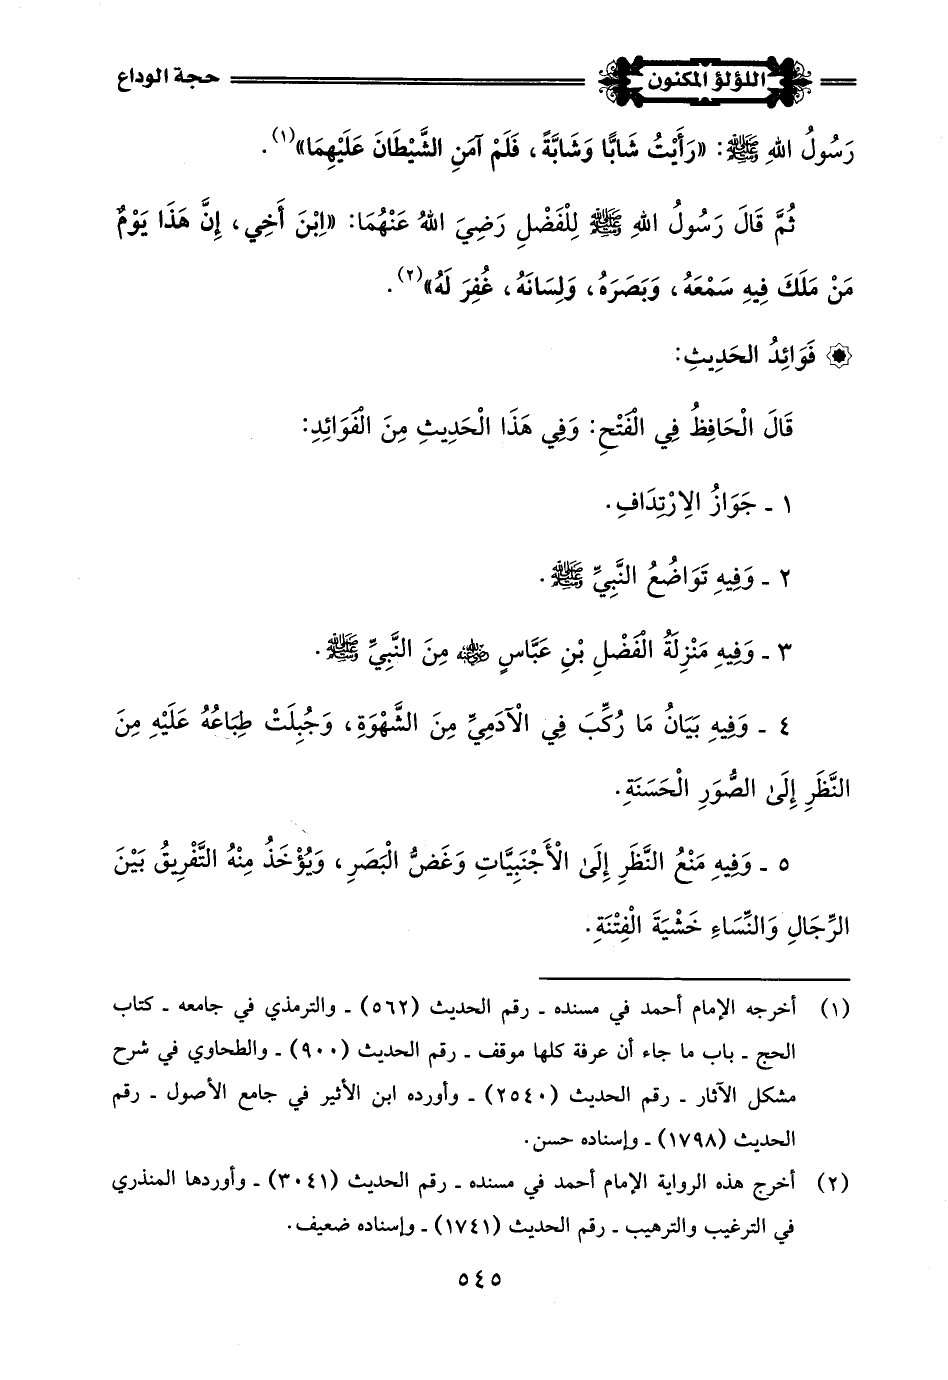 اللؤلؤ المكنون
حجة الوداع
رَسُولُ اللهِ ﷺ: «رَأَيْتُ شَابًّا وَشَابَّةً، فَلَمْ آمَنِ الشَّيْطَانَ عَلَيْهِمَا»(١).
ثُمَّ قَالَ رَسُولُ اللهِ ﷺ لِلْفَضْلِ رَضِيَ اللهُ عَنْهُمَا: «اِبْنَ أَخِي، إِنَّ هَذَا يَوْمٌ
مَنْ مَلَكَ فِيهِ سَمْعَهُ، وَبَصَرَهُ، وَلِسَانَهُ، غُفِرَ لَهُ»(٢).
۞ فَوَائِدُ الحَدِيثِ:
قَالَ الْحَافِظُ فِي الْفَتْحِ: وَفِي هَذَا الْحَدِيثِ مِنَ الْفَوَائِدِ:
١ ـ جَوَازُ الِارْتِدَافِ.
٢ ـ وَفِيهِ تَوَاضُعُ النَّبِيِّ ﷺ.
٣ ـ وَفِيهِ مَنْزِلَةُ الْفَضْلِ بْنِ عَبَّاسٍ رضي الله عنه مِنَ النَّبِيِّ ﷺ.
٤ ـ وَفِيهِ بَيَانُ مَا رُكِّبَ فِي الْآدَمِيِّ مِنَ الشَّهْوَةِ، وَجُبِلَتْ طِبَاعُهُ عَلَيْهِ مِنَ
النَّظَرِ إِلَىٰ الصُّوَرِ الْحَسَنَةِ.
٥ ـ وَفِيهِ مَنْعُ النَّظَرِ إِلَىٰ الْأَجْنَبِيَّاتِ وَغَضُّ الْبَصَرِ، وَيُؤْخَذُ مِنْهُ التَّفْرِيقُ بَيْنَ
الرِّجَالِ وَالنِّسَاءِ خَشْيَةَ الْفِتْنَةِ.
(١) أخرجه الإمام أحمد في مسنده ـ رقم الحديث (٥٦٢) ـ والترمذي في جامعه ـ كتاب
الحج ـ باب ما جاء أن عرفة كلها موقف ـ رقم الحديث (٩٠٠) ـ والطحاوي في شرح
مشكل الآثار ـ رقم الحديث (٢٥٤٠) ـ وأورده ابن الأثير في جامع الأصول ـ رقم
الحديث (١٧٩٨) ـ وإسناده حسن.
(٢) أخرج هذه الرواية الإمام أحمد في مسنده ـ رقم الحديث (٣٠٤١) ـ وأوردها المنذري
في الترغيب والترهيب ـ رقم الحديث (١٧٤١) ـ وإسناده ضعيف.
٥٤٥